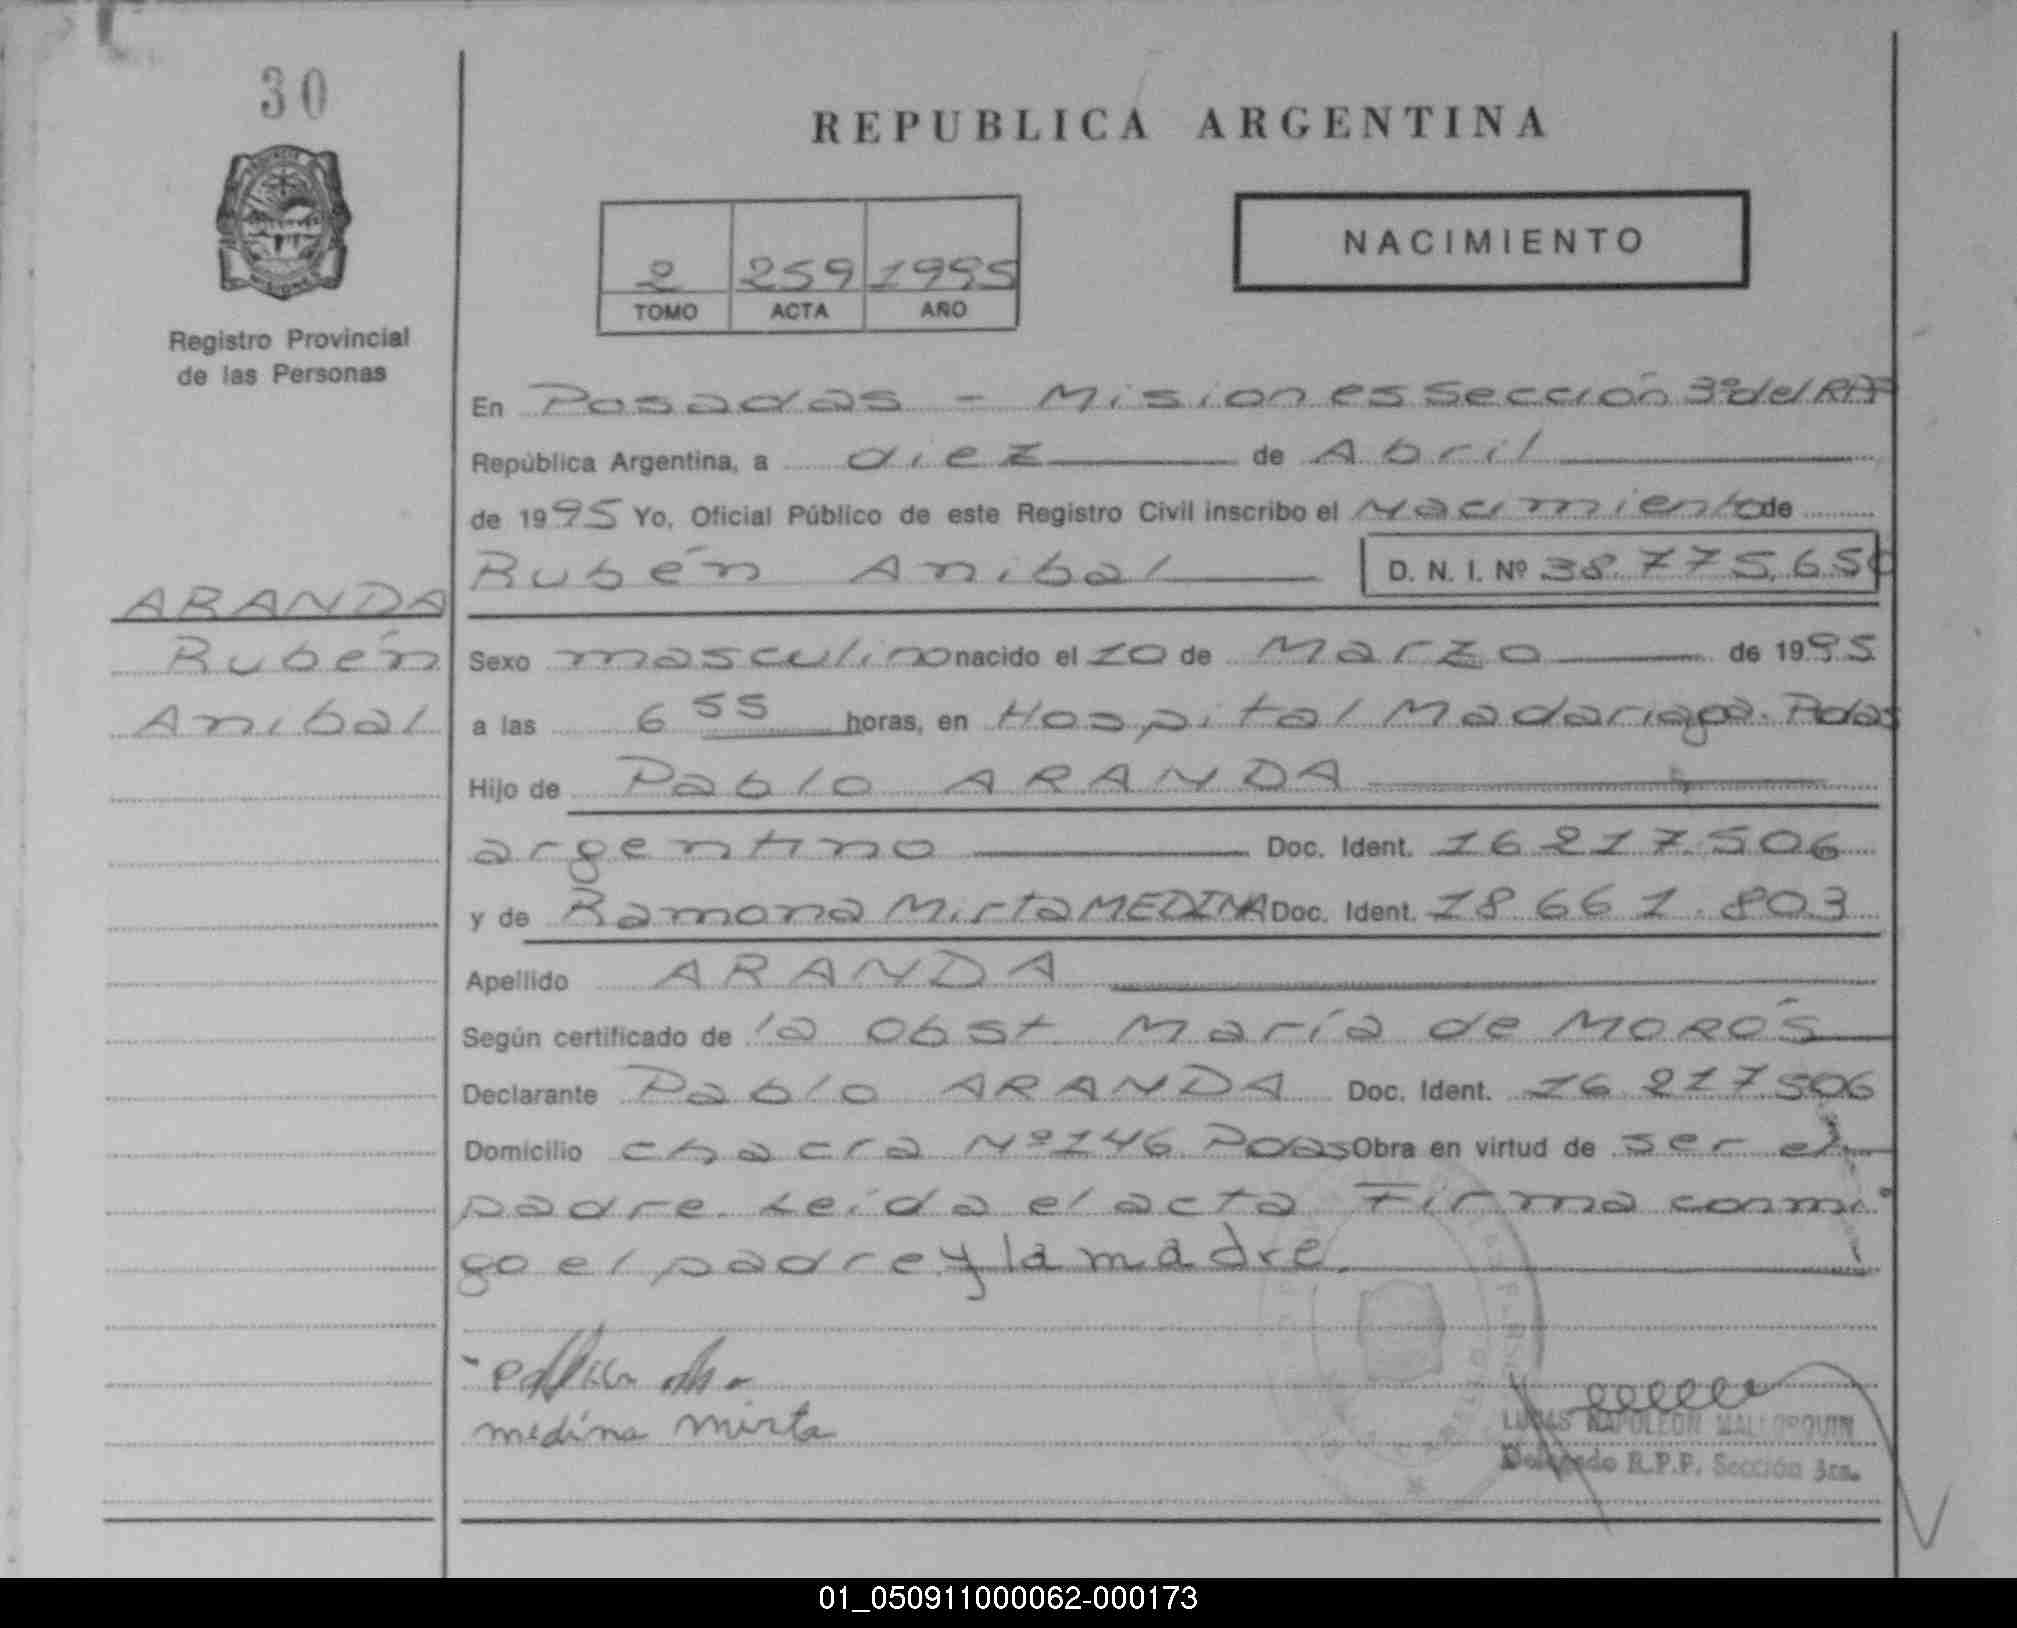 30
REPUBLICA ARGENTINA
NACIMIENTO
2 259 1995
TOMO ACTA AÑO
Registro Provincial
de las Personas
En Posadas - Misiones Sección 3º del RPP
República Argentina, a diez de Abril
de 1995 Yo, Oficial Público de este Registro Civil inscribo el Nacimiento de
Rubén Anibal D. N. I. Nº 38.775.650
ARANDA
Rubén
Anibal
Sexo masculino nacido el 10 de Marzo de 1995
a las 6 55 horas, en Hospital Madariaga. Pdas
Hijo de Pablo ARANDA
argentino Doc. Ident. 16 217 506
y de Ramona Mirta MEDINA Doc. Ident. 18 661.803
Apellido ARANDA
Según certificado de la Obst María de MOROS
Declarante Pablo ARANDA Doc. Ident. 16 217 506
Domicilio chacra Nº 146 Pdas Obra en virtud de ser el
padre. Leída el acta Firma conmi
go el padre y la madre.
medina mirta
LUCAS NAPOLEON MALLORQUIN
Delegado R.P.P. Sección 3ra.
01_050911000062-000173